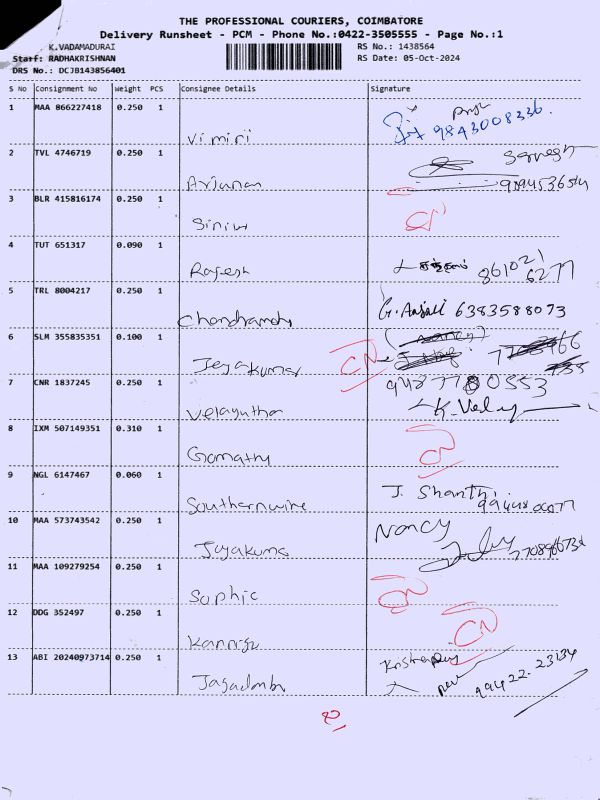 THE PROFESSIONAL COURIERS, COIMBATORE
Delivery Runsheet - PCM - Phone No.:0422-3505555 - Page No.:1
K.VADAMADURAI
Staff: RADHAKRISHNAN
DRS No.: DCJB143856401
RS No.: 1438564
RS Date: 05-Oct-2024
S No Consignment No Weight PCS Consignee Details Signature
1 MAA 866227418 0.250 1 Vimini 9843008336.
2 TVL 4746719 0.250 1 Arjunan
3 BLR 415816174 0.250 1 Siniw
4 TUT 651317 0.090 1 Rajesh 861021 6277
5 TRL 8004217 0.250 1 Chandramohn G. Anjali 6383588073
6 SLM 355835351 0.100 1 Jeyakumar CN
7 CNR 1837245 0.250 1 Velayuthan 9487780553 K. Velu
8 IXM 507149351 0.310 1 Gomathy CN
9 NGL 6147467 0.060 1 Southernwire J. Shanthi.
10 MAA 573743542 0.250 1 Jayakuma Nancy
11 MAA 109279254 0.250 1 Sophie CN
12 DDG 352497 0.250 1 CN
13 ABI 20240973714 0.250 1 Jagadamba